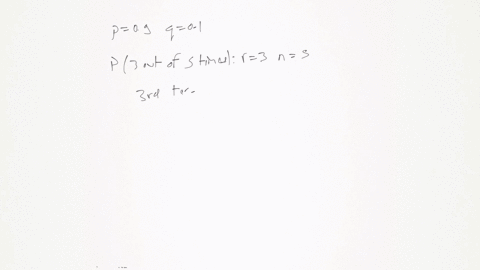 p=0.9 q=0.1
P(3 out of 5 times): r=3 n=5
3rd